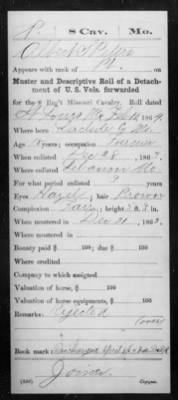 P. 8 Cav. Mo.
Albert
Appears with rank of Pt. on
Muster and Descriptive Roll of a Detach-
ment of U. S. Vols. forwarded
for the 8 Reg't Missouri Cavalry. Roll dated
St Louis Mo Feb 186 4.
Where born Laclede Co Mo.
Age years; occupation Farmer
When enlisted Dec 28, 186
Where enlisted Lebanon Mo.
For what period enlisted years.
Eyes Hazel; hair Brown
Complexion Fair; height 5 ft. in.
When mustered in Dec 186
Where mustered in
Bounty paid $ 100; due $ 100
Where credited
Company to which assigned
Valuation of horse, $ 100
Valuation of horse equipments, $ 100
Remarks: Rejected
(over)
Book mark:
Jones
Copyist.